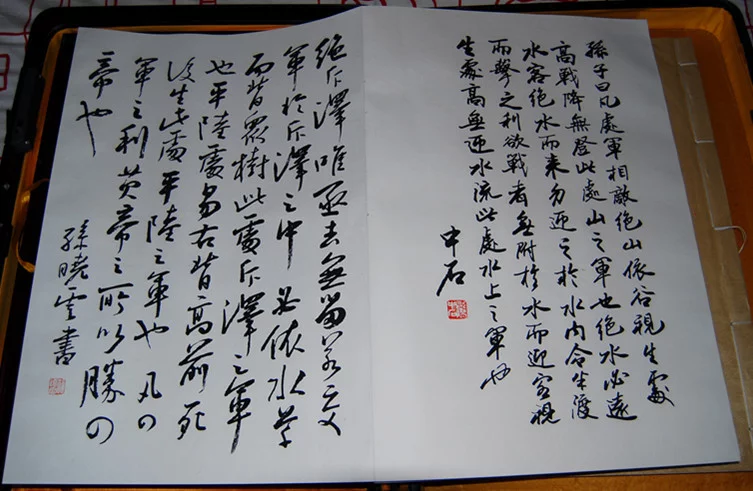 孫子曰凡處軍相敵絕山依谷視生處
高戰降無登此處山之軍也絕水必遠
水客絕水而來勿迎之於水內令半渡
而擊之利欲戰者無附於水而迎客視
生處高無迎水流此處水上之軍也
中石
絕斥澤唯亟去無留若交
軍於斥澤之中必依水草
而背眾樹此處斥澤之軍
也平陸處易右背高前死
後生此處平陸之軍也凡四
軍之利黃帝之所以勝四
帝也
孫曉雲書